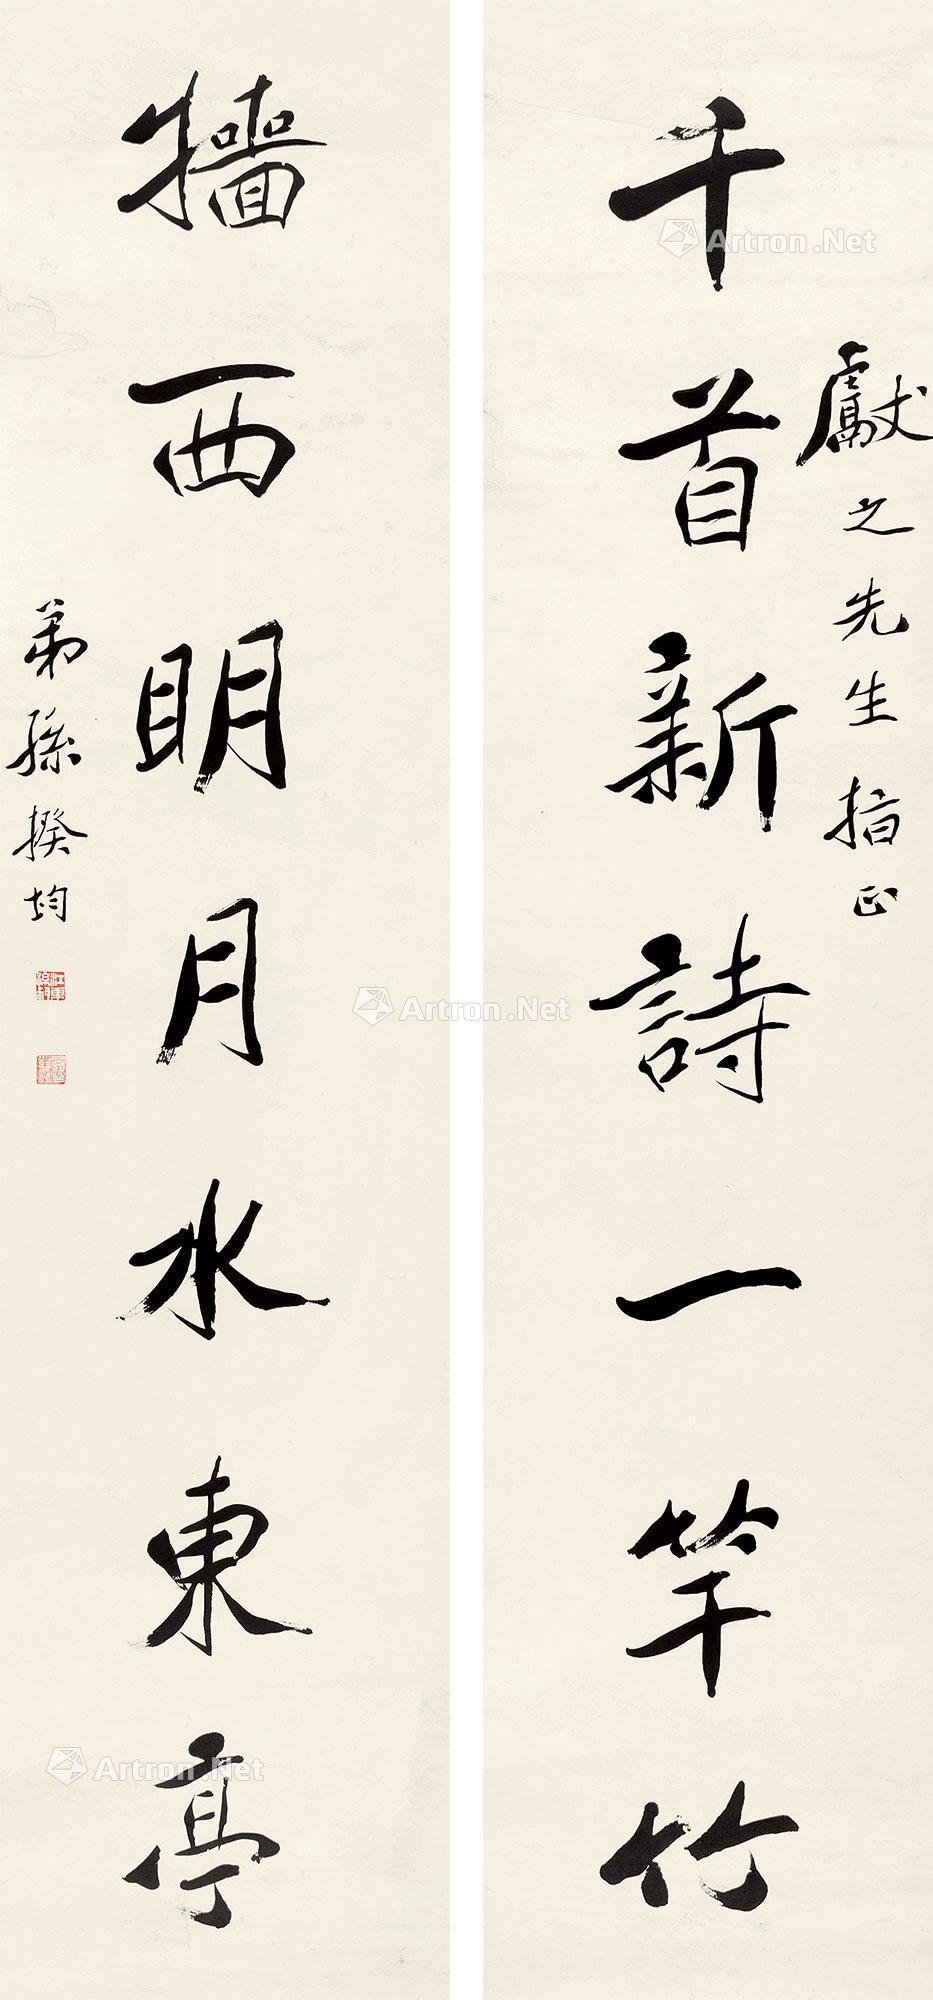 獻之先生指正
千首新詩一竿竹
牆西明月水東亭
弟孫揆均
Artron.Net
Artron.Net
Artron.Net